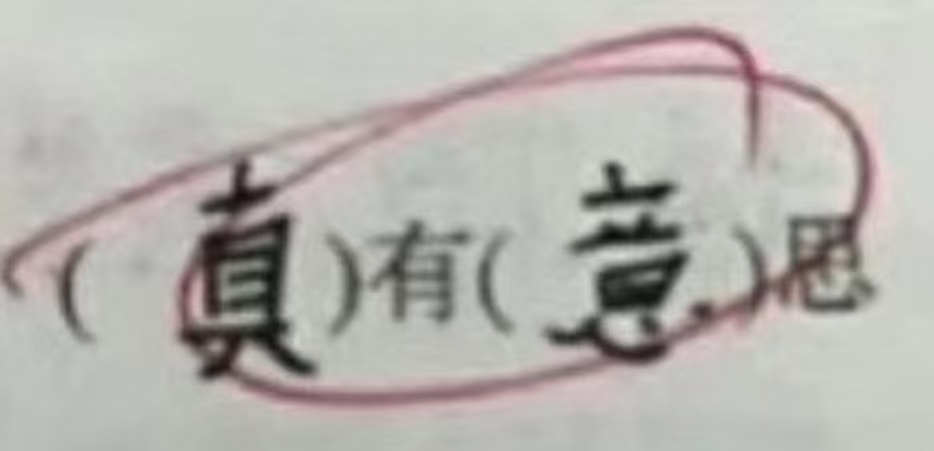 ( 真 )有( 意 )思